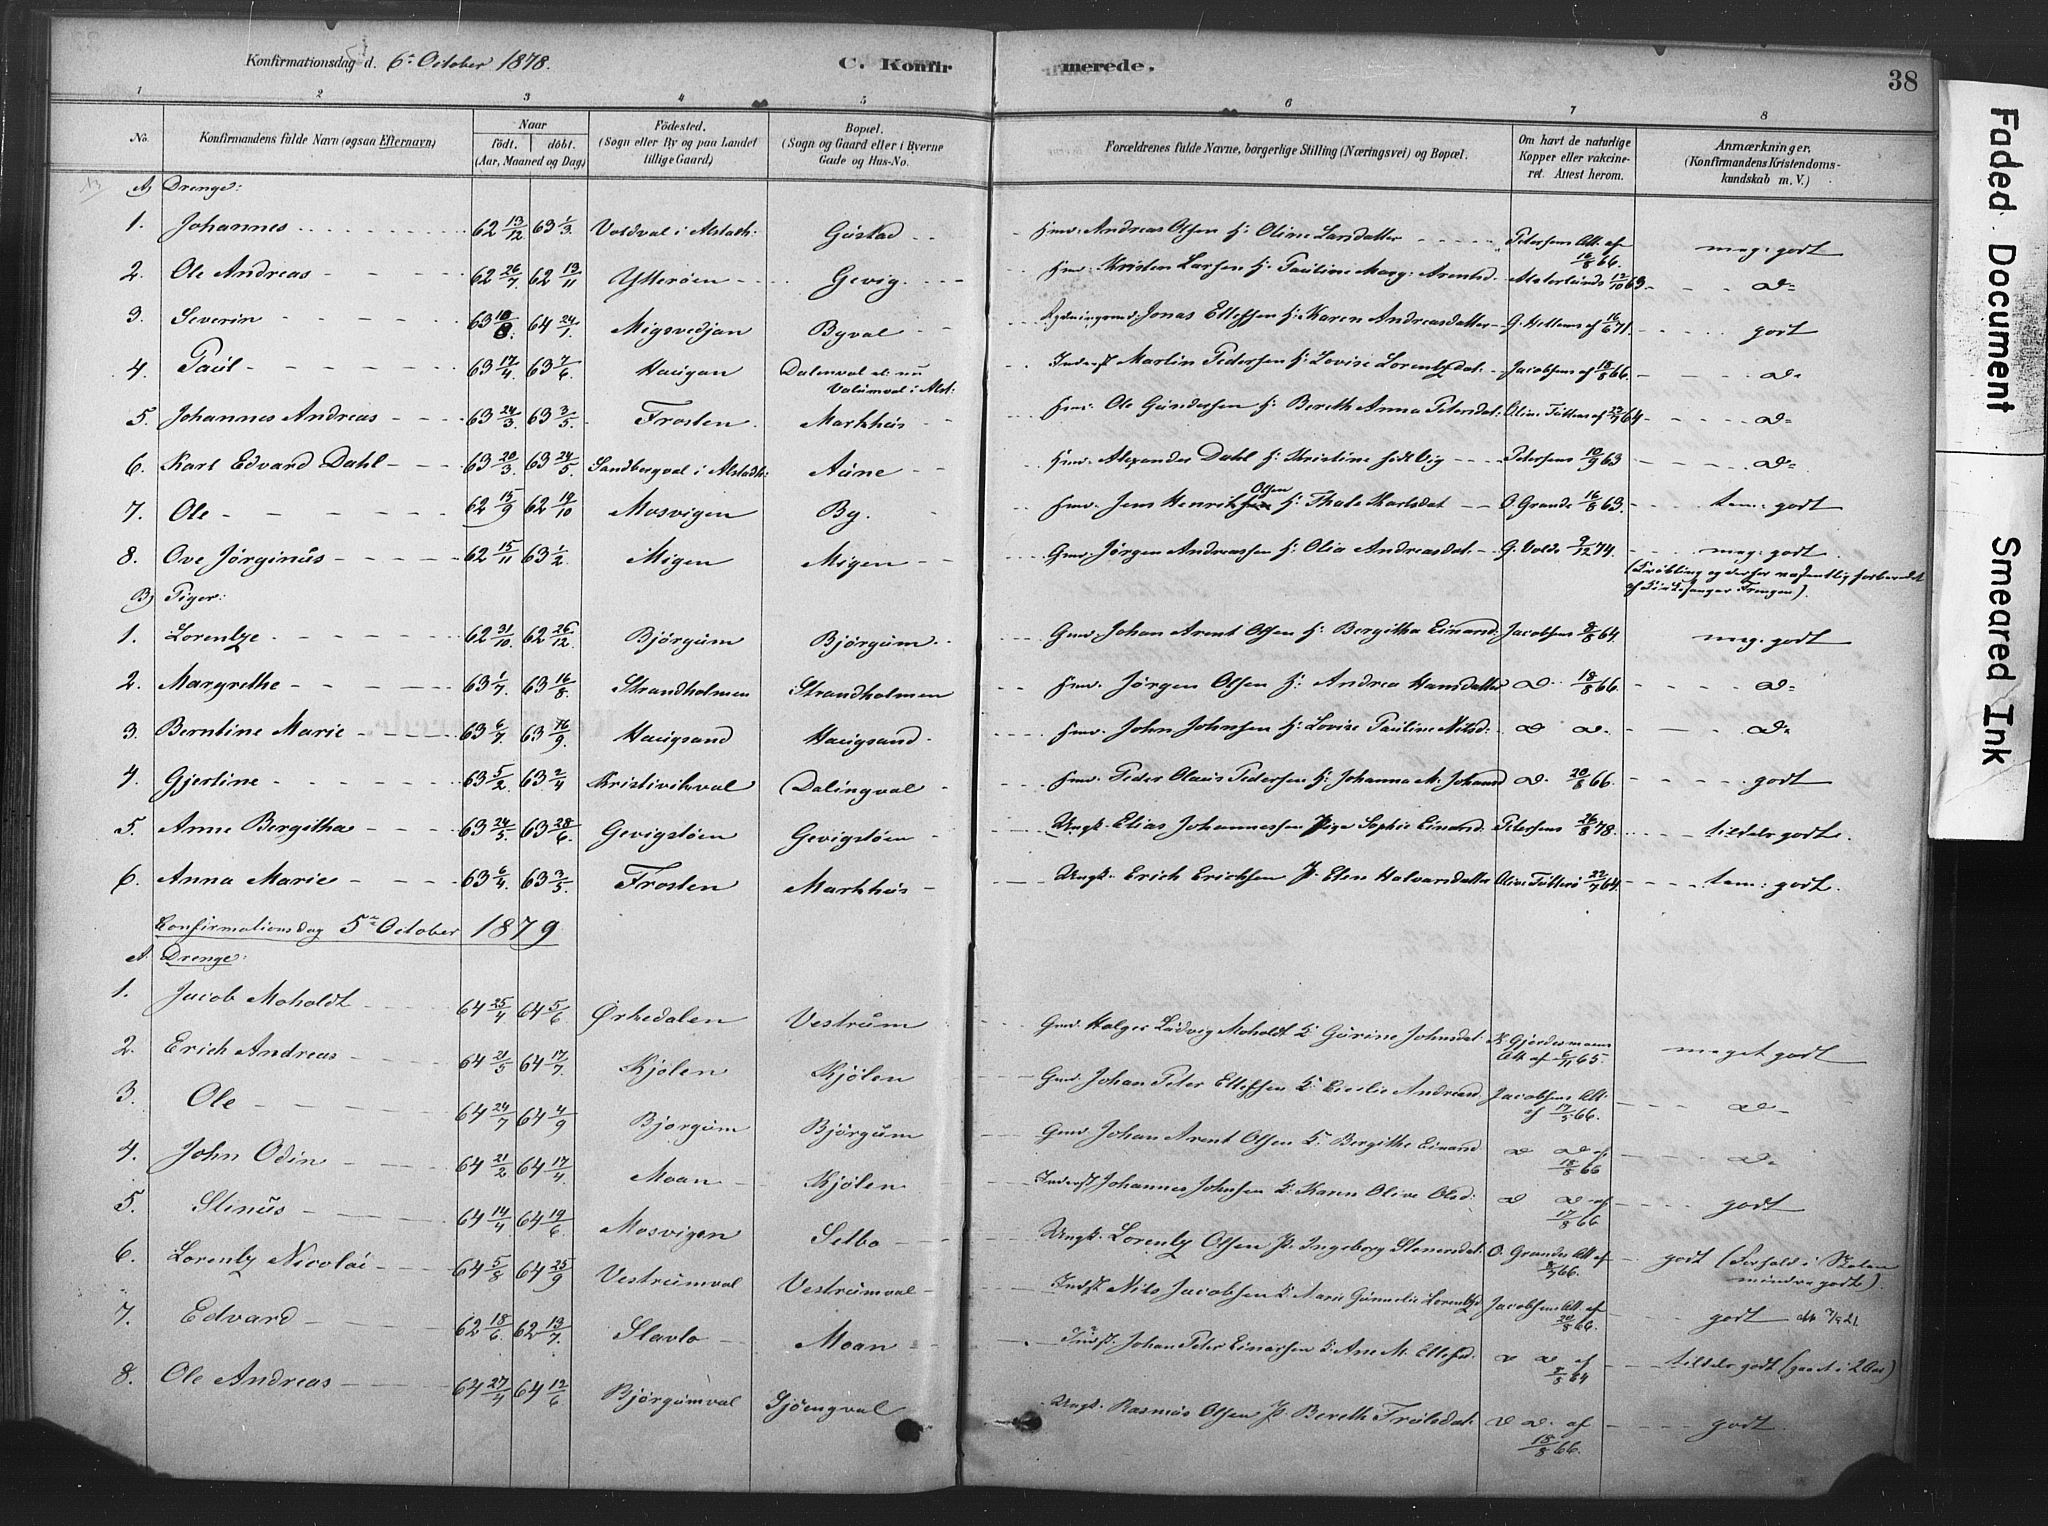 Konfirmationsdag d. 6te October 1878.
C. Konfirmerede.
38
1 2 3 4 5 6 7 8
No. Konfirmandens fulde Navn (ogsaa Efternavn) Naar født. døbt. (Aar, Maaned og Dag) Fødested. (Sogn eller By og paa Landet tillige Gaard) Bopæl. (Sogn og Gaard eller i Byerne Gade og Hus-No. Forældrenes fulde Navne, borgerlige Stilling (Næringsvei) og Bopæl. Om havt de naturlige Kopper eller vakcineret. Attest herom. Anmærkninger, (Konfirmandens Kristendomskundskab m. V.)
A) Drenge:
1. Johannes 62 13/12 63 1/3 Voldval i Alstadh: Gustad Hmd. Andreas Olsen H: Oline Larsdatter Petersens Att. af 16/8 66. meg: godt
2. Ole Andreas 62 26/7 62 13/11 Ytterøen Gevig Hmd. Kristen Larsen H: Pauline Marg: Arentsd. 12/10 63 d=
3. Severin 63 10/8 64 24/1 Migsvedjan Byval Jonas Ellefsen H: Karen Andreasdatter G. Hellems af 16/6 71. godt
4. Paul 63 17/4 63 7/6 Haugan Dalenval el. nu Valumval i Alst: Inderst Martin Pedersen H: Lovise Lorentzdat: Jacobsens af 18/8 66. d=
5. Johannes Andreas 63 24/3 63 3/5 Frosten Markhus Hmd. Ole Gundersen H: Bereth Anna Petersdat: Oline Tutters af 22/7 64 d=
6. Karl Edvard Dahl 63 20/3 63 24/5 Sandbergval i Alstadh: Aune Hmd. Alexander Dahl H: Kristine Hedevig Petersens 10/9 63 d=
7. Ole 62 15/9 62 19/10 Mosvigen By. Hmd. Jens Henrik Olsen H: Thale Karlsdat O. Grande 16/8 63. tem: godt
8. Ove Jørginus 62 15/11 63 1/2 Migen Migen Gmd. Jørgen Andreassen H: Olia Andreasdat. G. Volds 9/12 74. meg: godt.
(Krøbling og derfor væsentlig forberedet
af Kirkesanger Frengen).
B) Piger:
1. Lorentze 62 31/10 62 26/12 Bjørgum Bjørgum Gmd. Johan Arent Olsen H: Bergitha Einarsd: Jacobsens 8/8 64. meg: godt
2. Margrethe 63 1/7 63 16/8 Strandholmen Strandholmen Hmd. Jørgen Olsen H: Andrea Hansdatter d. 18/8 66. d=
3. Berntine Marie 63 6/7 63 16/9 Haugsand Haugsand Hmd. John Johnsen H: Lovise Pauline Nilsd: d d. d=
4. Gjertine 63 5/2 63 2/4 Kristivikval Dalingval Hmd. Peder Olaus Pedersen H: Johanna M. Johansd d. 20/8 66. godt
5. Anne Bergitha 63 24/5 63 28/6 Gevigsløen Gevigsløen Ungk. Elias Johannessen Pige Sophie Einarsd: Petersens 26/8 78. tildels godt.
6. Anna Marie 63 6/4 63 3/5 Frosten Markhus Ungk. Erich Erichsen P. Elen Halvarsdatter Oline Tutterø 22/7 64. tem: godt.
Konfirmationsdag 5te October 1879
A. Drenge:
1. Jacob Moholdt 64 25/4 64 5/6 Ørkedalen Vestrum Gmd. Holger Ludvig Moholdt K. Gurine Johnsdat: K. Gjerdesmoens Att. af 6/11 65. meget godt
2. Erich Andreas 64 21/5 64 17/7 Kjølen Kjølen Gmd. Johan Peter Ellefsen K. Cicilie Andreasd Jacobsens Att. af 17/5 66. d=
3. Ole 64 24/7 64 4/9 Bjørgum Bjørgum Gmd. Johan Arent Olsen K. Bergithe Einarsd d d. af 18/8 66 d=
4. John Odin 64 21/2 64 17/4 Moan Kjølen Inderst Johannes Johnsen K. Karen Olive Olsd: d d. af 17/8 66 godt
5. Stinus 64 14/4 64 19/6 Mosvigen Selbo Ungk. Lorentz Olsen P. Ingeborg Stenersdat: O. Grandes Att af 8/7 66. godt (Forhold i Skolen mindre godt).
6. Lorentz Nicolai 64 5/8 64 25/9 Vestrumval Vestrumval Indst. Nils Jacobsen K. Marie Gunnelie Lorentzd Jacobsens Att. af 20/8 66. godt
7. Edvard 62 18/6 62 13/7 Slavlo Moan Indst. Johan Peter Einarsen K. Ane M. Ellefsd. d d. af 2/5 64 tildels godt (gaaet i 2 Aar)
8. Ole Andreas 64 27/4 64 12/6 Bjørgumval Gjøengval Ungk. Rasmus Olsen P. Bereth Troelsdat: d d. af 18/8 66. godt.
Faded Document
Smeared Ink